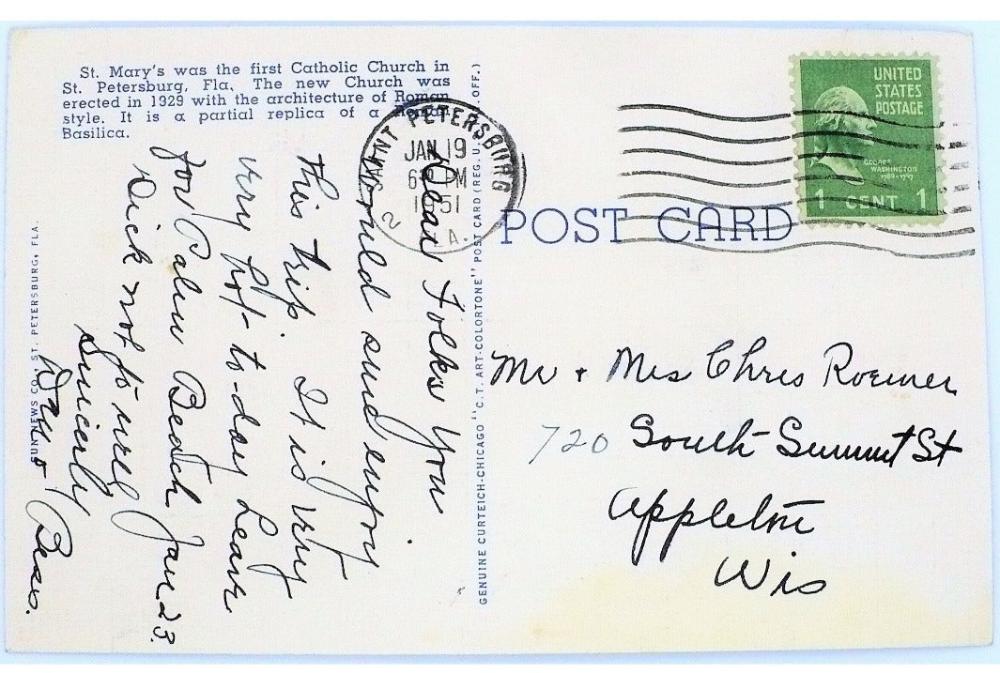 St. Mary's was the first Catholic Church in
St. Petersburg, Fla. The new Church was
erected in 1929 with the architecture of Roman
style. It is a partial replica of a Roman
Basilica.
SAINT PETERSBURG
JAN 19
6 PM
1951
2 FLA.
UNITED
STATES
POSTAGE
GEORGE
WASHINGTON
1789-1797
1 CENT 1
POST CARD
Dear Folks you
would sure enjoy
this trip. It is very
very hot to-day Leave
for Palm Beach Jan 23.
Dick not so well
Sincerly
Bess.
Mr + Mrs Chris Roemer
720 South Summit St
Appleton
Wis
SUN NEWS CO., ST. PETERSBURG, FLA.
GENUINE CURTEICH-CHICAGO "C.T. ART-COLORTONE" POST CARD (REG. U.S. OFF.)